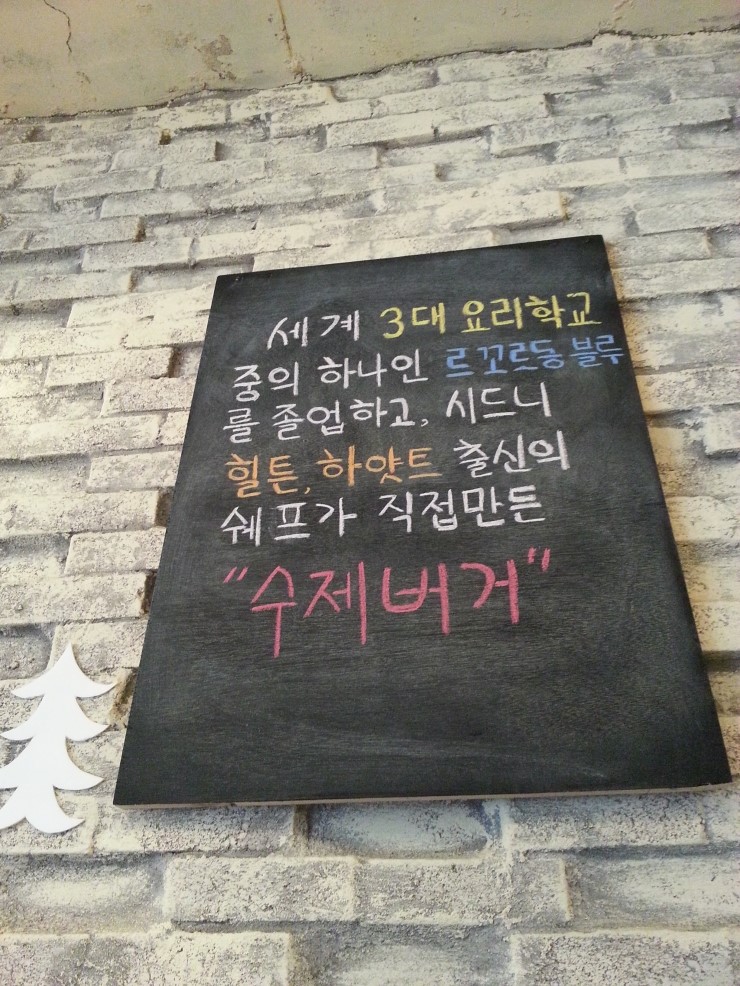 세계 3대 요리학교
중의 하나인 르꼬르동블루
를 졸업하고, 시드니
힐튼, 하얏트 출신의
쉐프가 직접만든
"수제버거"